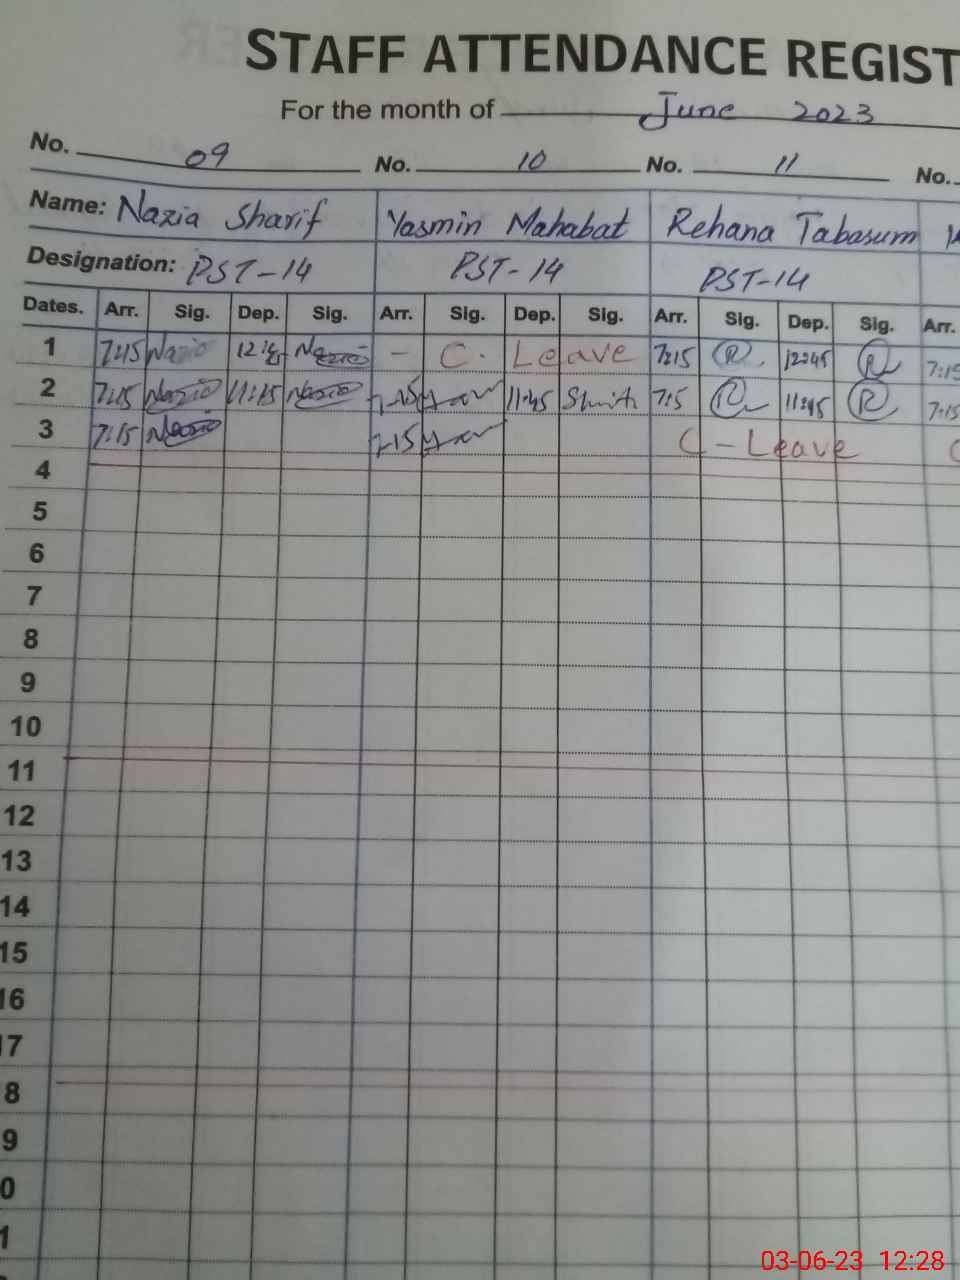 STAFF ATTENDANCE REGIST
For the month of June 2023
No. 09 No. 10 No. 11 No.
Name: Nazia Sharif Yasmin Mahabat Rehana Tabasum
Designation: PST-14 PST-14 PST-14
Dates. Arr. Sig. Dep. Sig. Arr. Sig. Dep. Sig. Arr. Sig. Dep. Sig. Arr.
1 7:15 Nazia Nazia - C. Leave 7:15 R 12:45 R 7:15
2 7:15 Nazia 11:45 Nazia 7:15 11:45 7:15 R 11:45 R 7:15
3 7:15 Nazia 7:15 C - Leave C
4
5
6
7
8
9
10
11
12
13
14
15
16
17
8
9
0
1
03-06-23 12:28